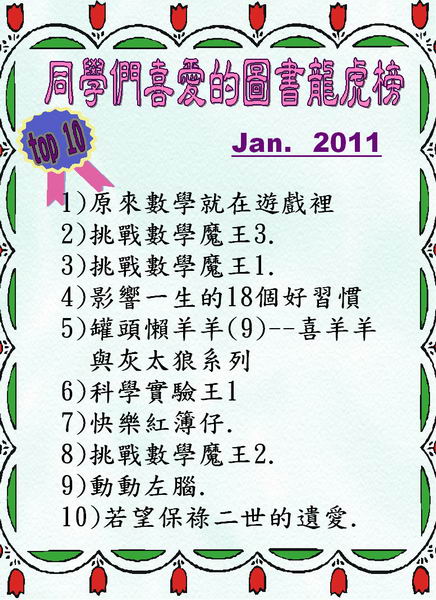 同學們喜愛的圖書龍虎榜
top 10
Jan. 2011
1)原來數學就在遊戲裡
2)挑戰數學魔王3.
3)挑戰數學魔王1.
4)影響一生的18個好習慣
5)罐頭懶羊羊(9)--喜羊羊
與灰太狼系列
6)科學實驗王1
7)快樂紅簿仔.
8)挑戰數學魔王2.
9)動動左腦.
10)若望保祿二世的遺愛.